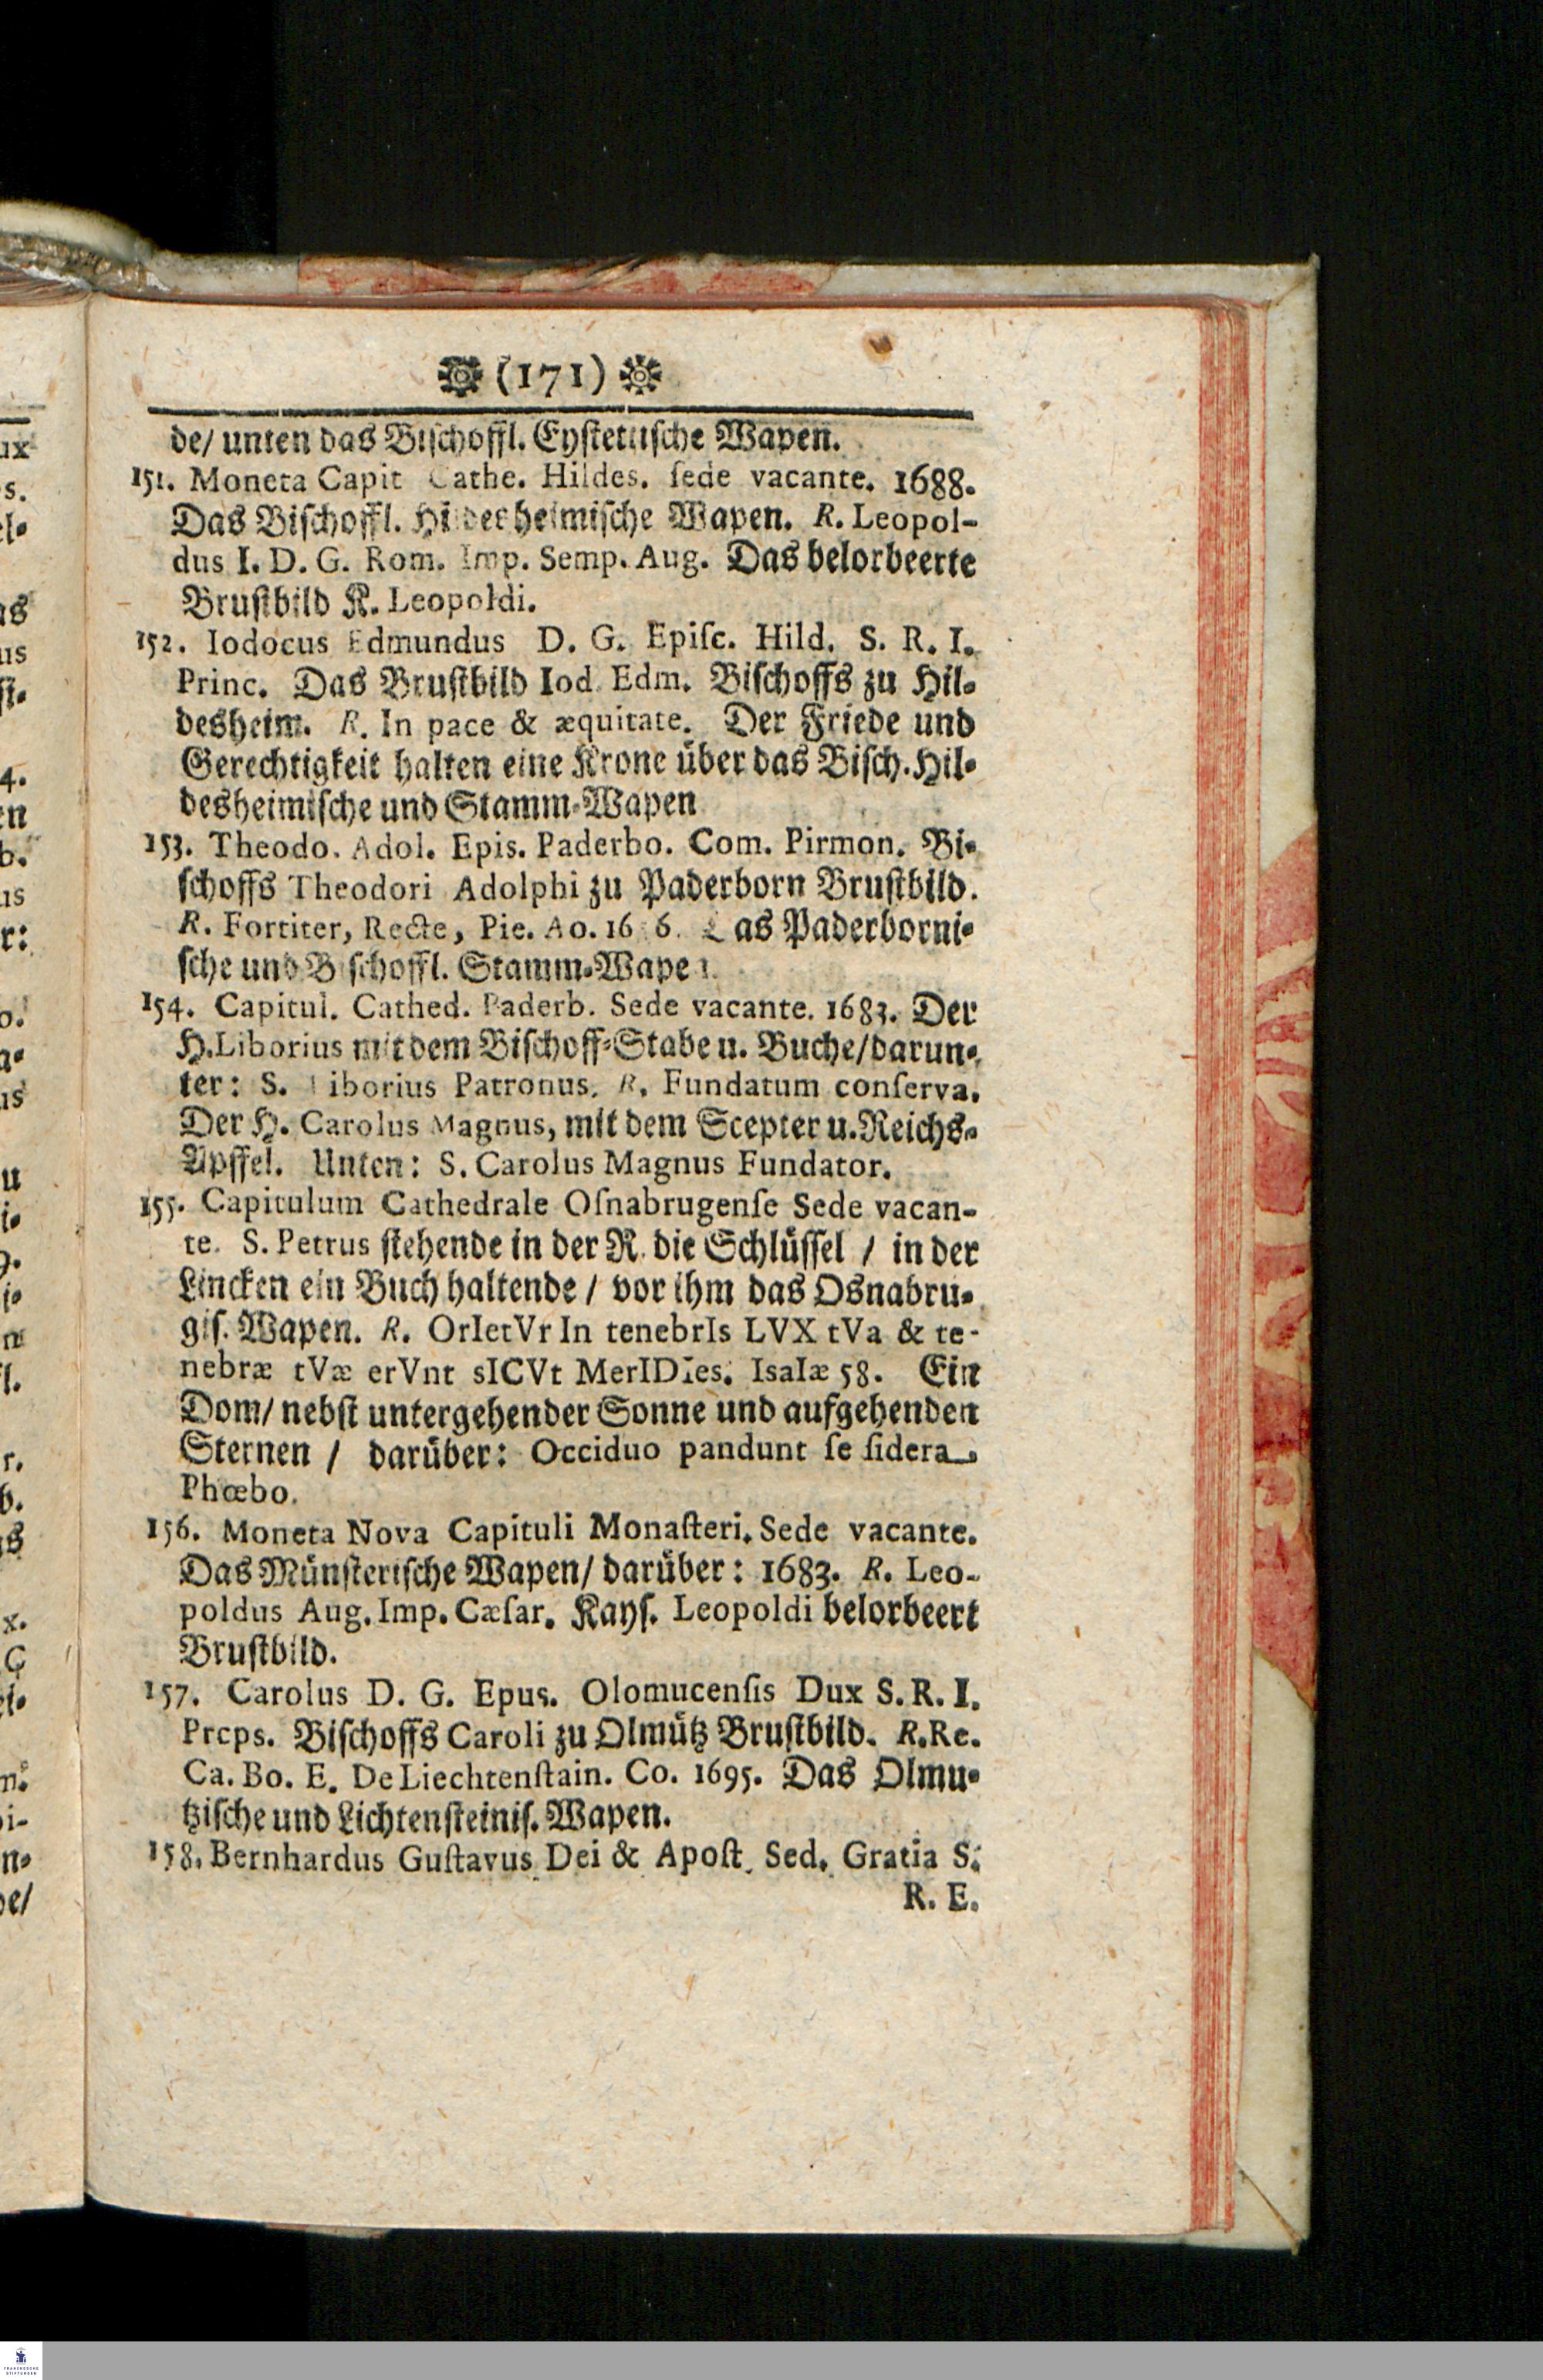 (171)
de/ unten das Bischoffl. Eystettische Wapen.
151. Moneta Capit Cathe. Hildes. ſede vacante. 1688.
Das Bischoffl. Hildesheimische Wapen. R. Leopol-
dus I. D. G. Rom. Imp. Semp. Aug. Das belorbeerte
Brustbild K. Leopoldi.
152. Iodocus Edmundus D. G. Epiſc. Hild. S. R. I.
Princ. Das Brustbild Iod. Edm. Bischoffs zu Hil-
desheim. R. In pace & æquitate. Der Friede und
Gerechtigkeit halten eine Krone über das Bisch. Hil-
desheimische und Stamm-Wapen
153. Theodo. Adol. Epis. Paderbo. Com. Pirmon. Bi-
schoffs Theodori Adolphi zu Paderborn Brustbild.
R. Fortiter, Recte, Pie. Ao. Das Paderborni-
sche und Bischoffl. Stamm-Wapen.
154. Capitul. Cathed. Paderb. Sede vacante. 1683. Der
H. Liborius mit dem Bischoff-Stabe u. Buche/darun-
ter: S. Liborius Patronus. R. Fundatum conſerva.
Der H. Carolus Magnus, mit dem Scepter u. Reichs-
Apffel. Unten: S. Carolus Magnus Fundator.
155. Capitulum Cathedrale Oſnabrugenſe Sede vacan-
te. S. Petrus stehende in der R. die Schlüssel / in der
Lincken ein Buch haltende / vor ihm das Osnabru-
gis. Wapen. R. OrIetVr In tenebrIs LVX tVa & te-
nebræ tVæ erVnt sICVt MerIDIes. IsaIæ 58. Ein
Dom/ nebst untergehender Sonne und aufgehenden
Sternen / darüber: Occiduo pandunt ſe ſidera
Phœbo.
156. Moneta Nova Capituli Monaſteri. Sede vacante.
Das Münsterische Wapen/ darüber: 1683. R. Leo-
poldus Aug. Imp. Cæſar. Kays. Leopoldi belorbeert
Brustbild.
157. Carolus D. G. Epus. Olomucenſis Dux S. R. I.
Preps. Bischoffs Caroli zu Olmütz Brustbild. R. Re.
Ca. Bo. E. De Liechtenſtain. Co. 1695. Das Olmu-
tzische und Lichtensteinis. Wapen.
158. Bernhardus Guſtavus Dei & Apoſt. Sed. Gratia S.
R. E.
FRANCKESCHE
STIFTUNGEN